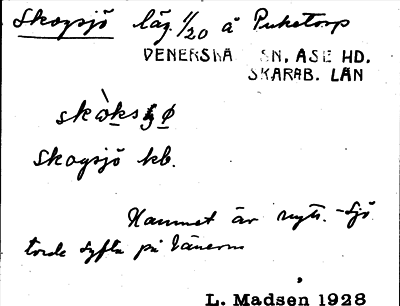 Skogsjö läg. 1/20 å Puketorp
VENERSNÄ SN, ÅSE HD.
SKARAB. LÄN
skògsʃø
Skogsjö kb.
Namnet är nytt. -sjö
torde syfta på Vänern
L. Madsen 1928